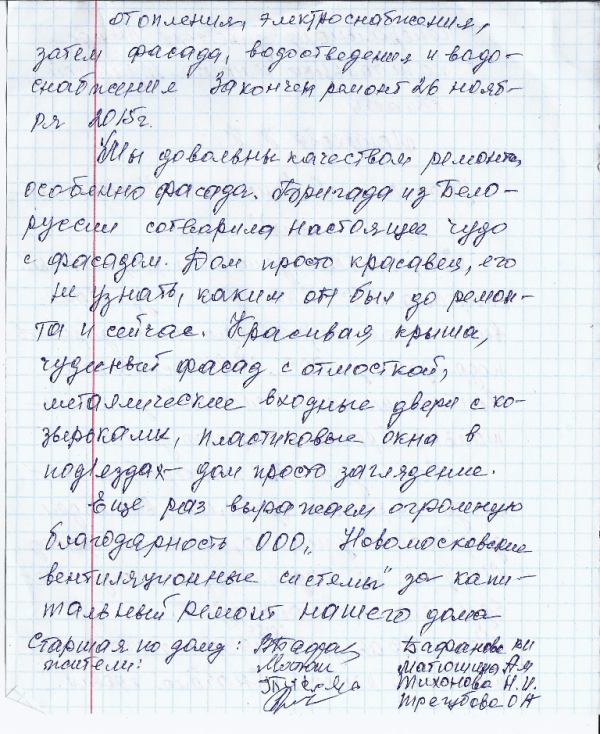 отопления, электроснабжения,
затем фасада, водоотведения и водо-
снабжения Закончен ремонт 26 нояб-
ря 2015г.
Мы довольны качеством ремонта,
особенно фасада. Бригада из Бело-
руссии сотворила настоящее чудо
с фасадом. Дом просто красавец, его
не узнать, каким он был до ремон-
та и сейчас. Красивая крыша,
чудесный фасад с отмосткой,
металлические входные двери с ко-
зырьками, пластиковые окна в
подъездах - дом просто загляденье.
Еще раз выражаем огромную
благодарность ООО „Новомосковские
вентиляционные системы" за капи-
тальный ремонт нашего дома
Старшая по дому:
жители: Матюшина А.М
Тихонова Н.И.
Трегубова О А